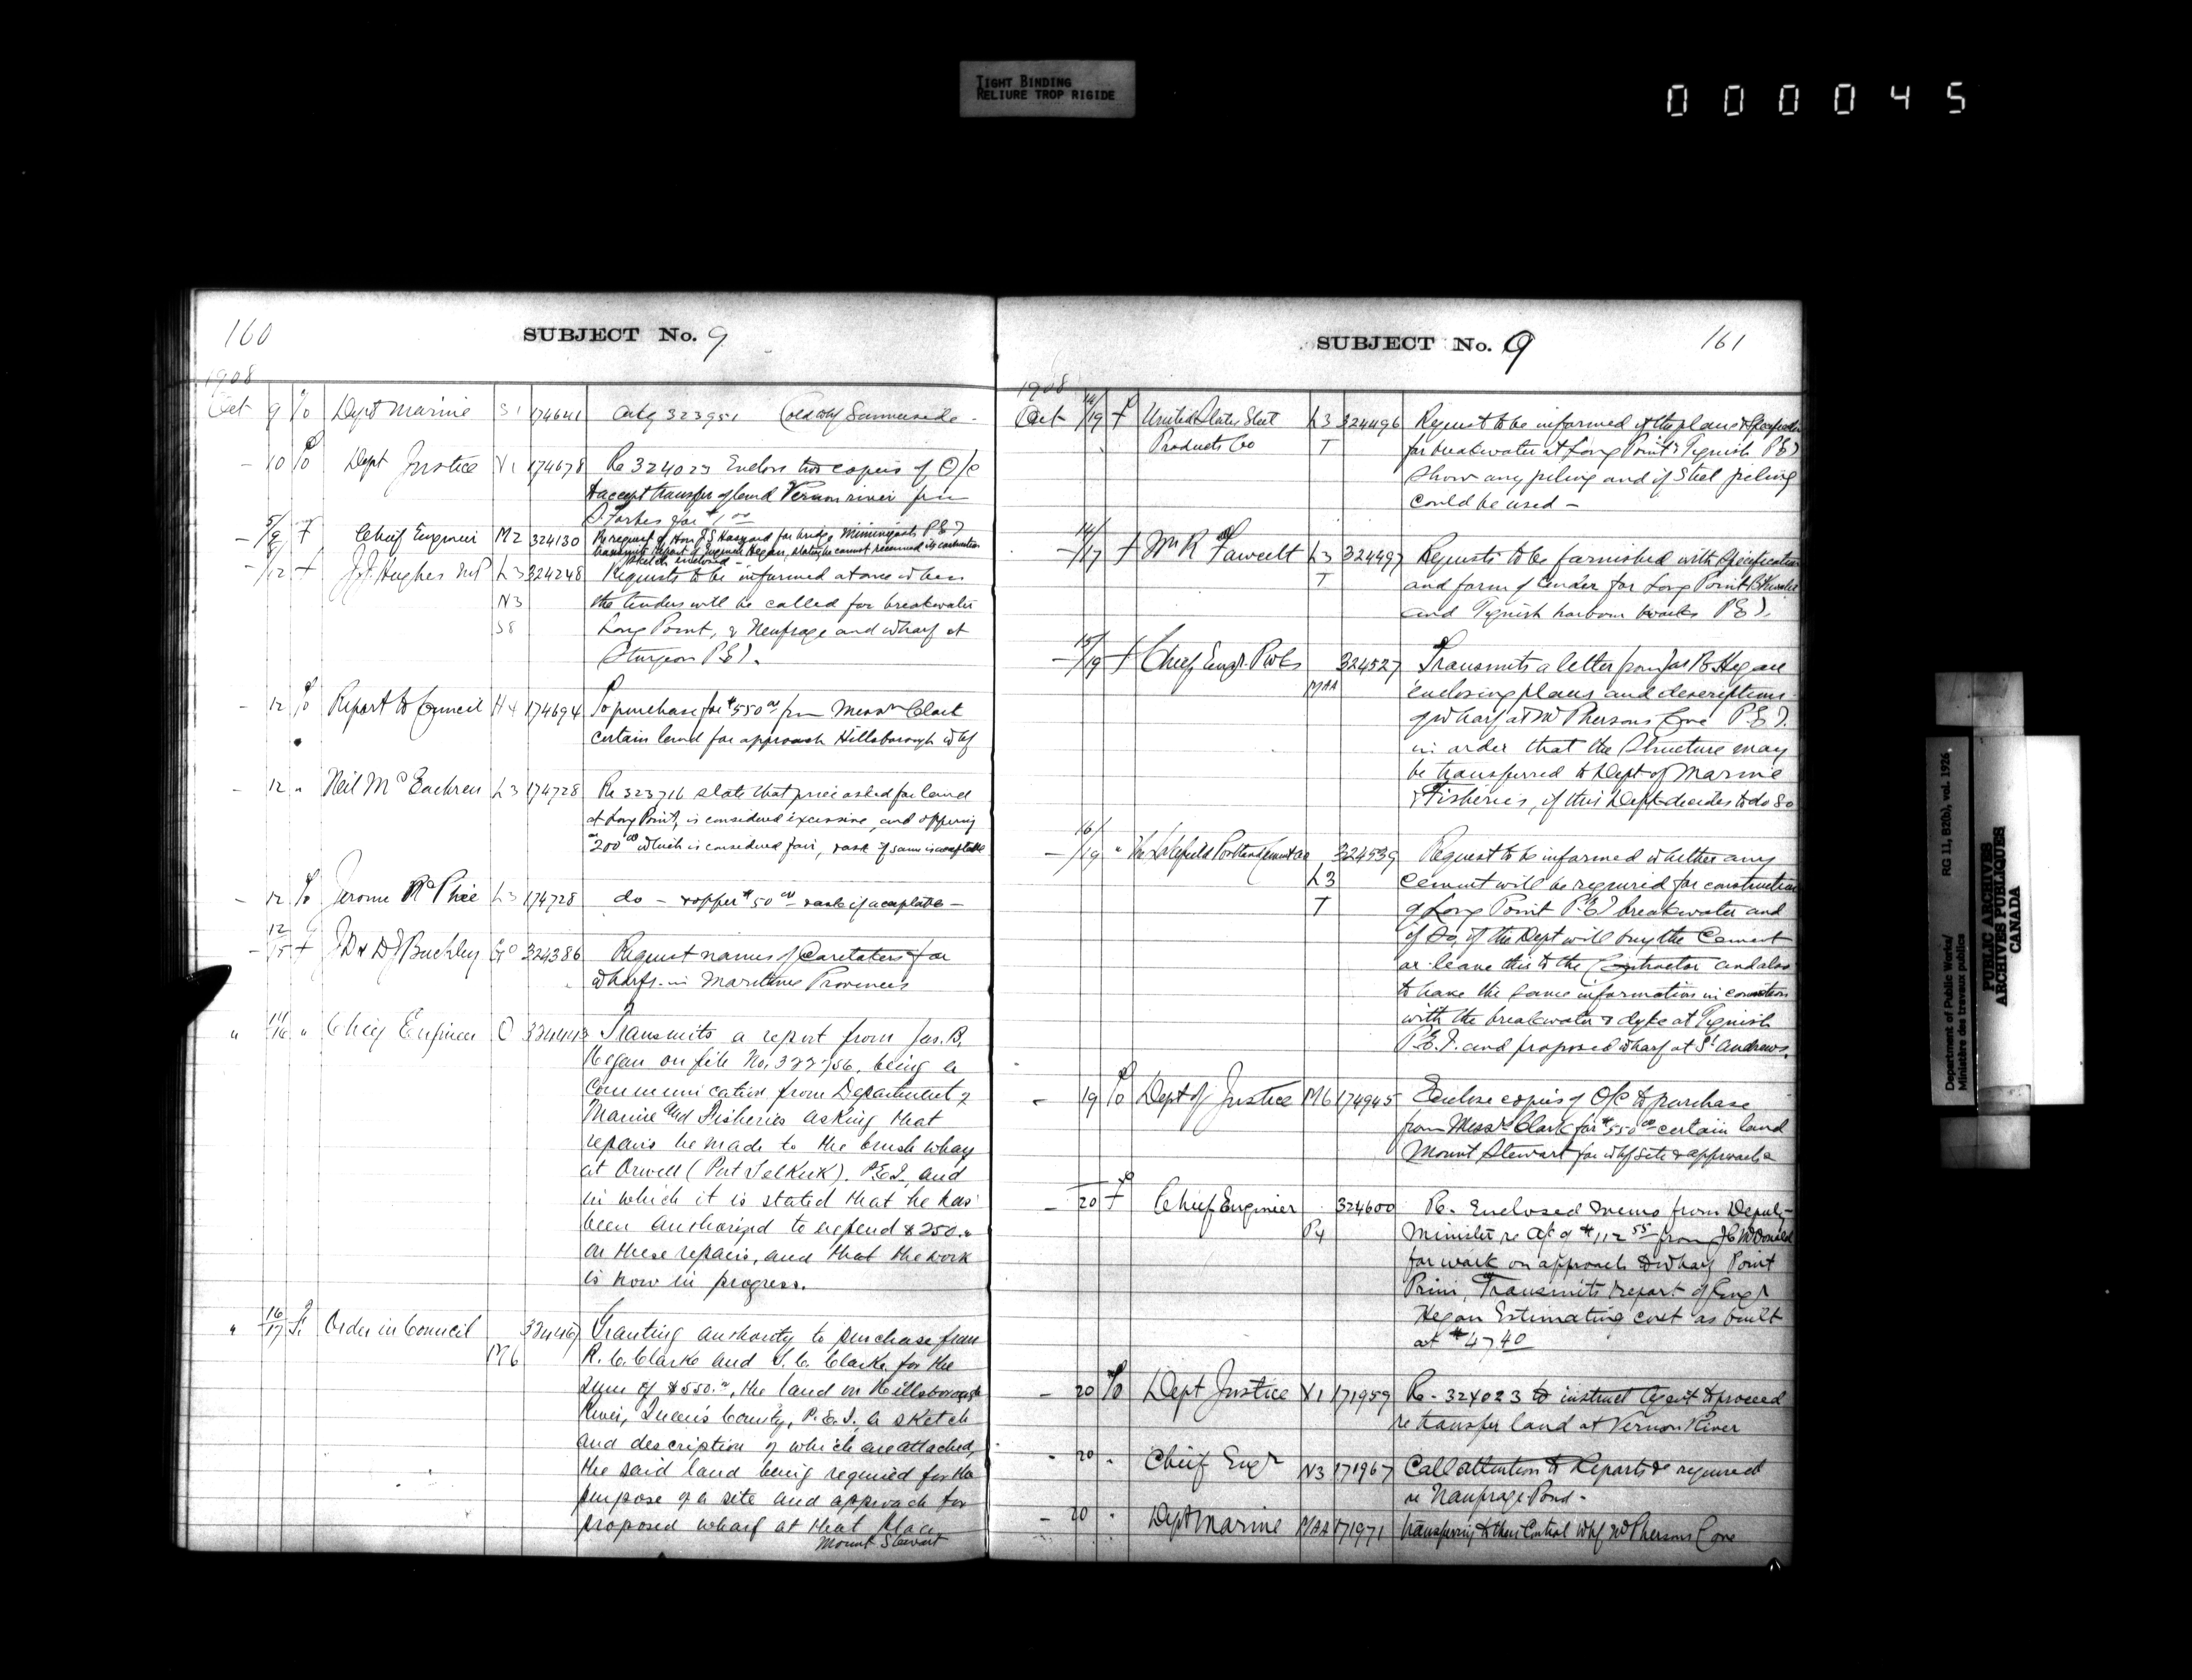 TIGHT BINDING
RELIURE TROP RIGIDE
000045
160
SUBJECT No. 9
1908
Oct 9 Dept Marine S1 174641 323951 Summerside
10 Dept Justice V1 174678 Re 324023 Enclose two copies of O/C
to accept transfer of land Vernon river from
Forbes for $1.00
5/9 F Chief Engineer M2 324130 Re request of Hon J S Haszard for bridge Miminigash P E I
transmits report of Engineer Hegan, stating he cannot recommend its construction
sketch enclosed -
/12 J.J. Hughes MP L3 324248 Requests to be informed at once when
N3 the tenders will be called for breakwater
S8 Long Point, & Naufrage and wharf at
Sturgeon P E I.
12 Report to Council H4 174694 To purchase for $550.00 from Messrs Clark
certain land for approach Hillsborough whf
12 " Neil McEachren L3 174728 Re 323716 state that price asked for land
at Long Point, is considered excessive, and offering
200.00 which is considered fair, & ask if same is acceptable
12 Jerome McPhee L3 174728 do - & offer $50.00 & ask if acceptable -
12/15 J D & D J Buckley 324386 Request names of Caretakers for
wharfs in Maritime Provinces
" 14/16 " Chief Engineer O 324443 Transmits a report from Jas. B.
Hegan on file No. being a
communication from Department of
Marine and Fisheries asking that
repairs be made to the brush wharf
at Orwell (Port Selkirk). P.E.I., and
in which it is stated that he has
been authorized to expend $250.00
on these repairs, and that the work
is now in progress.
" 16/17 Order in Council 324467 Granting authority to purchase from
M6 R. C. Clarke and S. C. Clarke for the
sum of $550.00, the land on Hillsborough
River, Queen's County, P.E.I. a sketch
and description of which are attached,
the said land being required for the
purpose of a site and approach for
proposed wharf at that place,
Mount Stewart
SUBJECT No. 9
161
1908
Oct 14/19 F United States Steel L3 324496 Request to be informed if the plans & specification
Products Co T for breakwater at Long Point & Tignish P E I
show any piling and if steel piling
could be used -
14/17 F Wm R Fawcett L3 324497 Requests to be furnished with specification
T and form of tender for Long Point B Kwater
and Tignish harbour works P E I.
15/19 F Chief Engr. P Wks 324527 Transmits a letter from Jas B. Hegan
MAA enclosing plans and descriptions
of wharf at McPhersons Cove P E I.
in order that the structure may
be transferred to Dept of Marine
& Fisheries, if this Dept decides to do so
16/19 " The Lakefield Portland Cement Co 324539 Request to be informed whether any
L3 cement will be required for construction
T of Long Point P E I breakwater and
if so, if the Dept will buy the Cement
or leave this to the Contractor and also
to have the same information in connection
with the breakwater & dyke at Tignish
P.E.I. and proposed wharf at St Andrews.
19 Dept of Justice M6 174945 Enclose copies of O/C to purchase
from Messrs Clark for $550.00 certain land
Mount Stewart for whf site & approach
20 F Chief Engineer 324600 Re. Enclosed memo from Deputy
P4 Minister re a/c of $112.55 from J C McDonald
for work on approach to wharf Point
Prim, Transmits report of Engr
Hegan Estimating cost as built
at $47.40
20 Dept Justice V1 171959 Re - 324023 to instruct Agent to proceed
re transfer land at Vernon River
20 " Chief Engr N3 171967 Call attention to Reports &c required
re Naufrage Pond -
20 " Dept Marine MAA 171971 Transferring to their Control whf McPhersons Cove
Department of Public Works/
Ministère des travaux publics
RG 11, B2(b), vol. 1926
PUBLIC ARCHIVES
ARCHIVES PUBLIQUES
CANADA